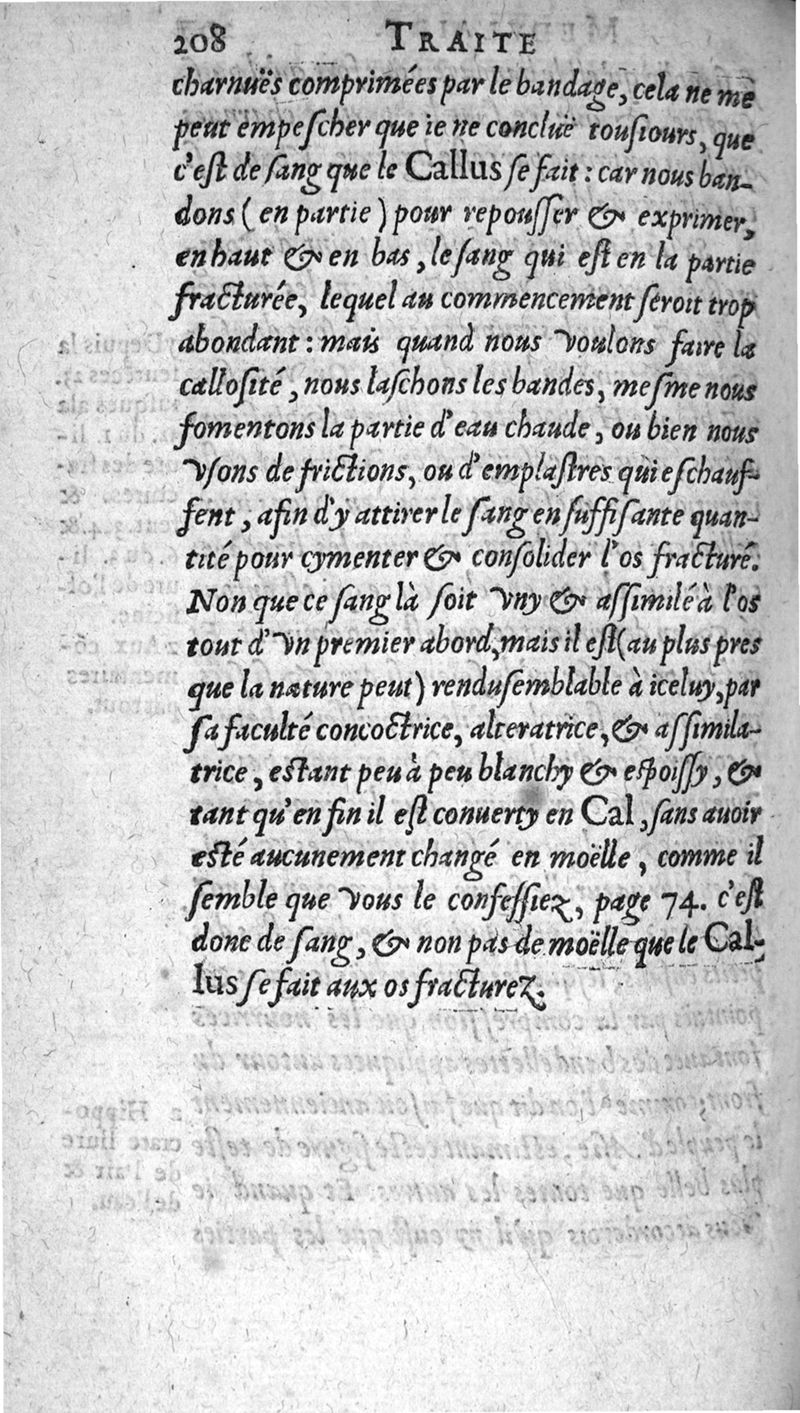 208 TRAITE
charnuës comprimées par le bandage, cela ne me
peut empeſcher que ie ne concluë touſiours, que
c'eſt de ſang que le Callus ſe fait : car nous ban-
dons ( en partie ) pour repouſſer & exprimer,
en haut & en bas, le ſang qui eſt en la partie
fracturée, lequel au commencement ſeroit trop
abondant : mais quand nous voulons faire la
calloſité, nous laſchons les bandes, meſme nous
fomentons la partie d'eau chaude, ou bien nous
vſons de frictions, ou d'emplaſtres qui eſchauf-
fent, afin d'y attirer le ſang en ſuffiſante quan-
tité pour cymenter & conſolider l'os fracturé.
Non que ce ſang là ſoit vny & aſſimilé à l'os
tout d'vn premier abord, mais il eſt (au plus pres
que la nature peut) rendu ſemblable à iceluy, par
ſa faculté concoctrice, alteratrice, & aſſimila-
trice, eſtant peu à peu blanchy & eſpoiſſy, &
tant qu'en fin il eſt conuerty en Cal, ſans auoir
eſté aucunement changé en moëlle, comme il
ſemble que vous le confeſſiez, page 74. c'eſt
donc de ſang, & non pas de moëlle que le Cal-
lus ſe fait aux os fracturez.